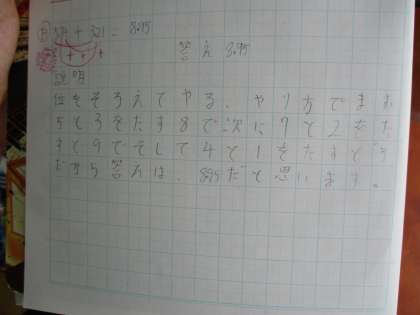 574 + 321 = 895
答え 895
説明
位をそろえてやる、やり方でまず
5と3をたす8で次に7と2をた
すと9でそして4と1をたすと5
だから答えは、895だと思います。